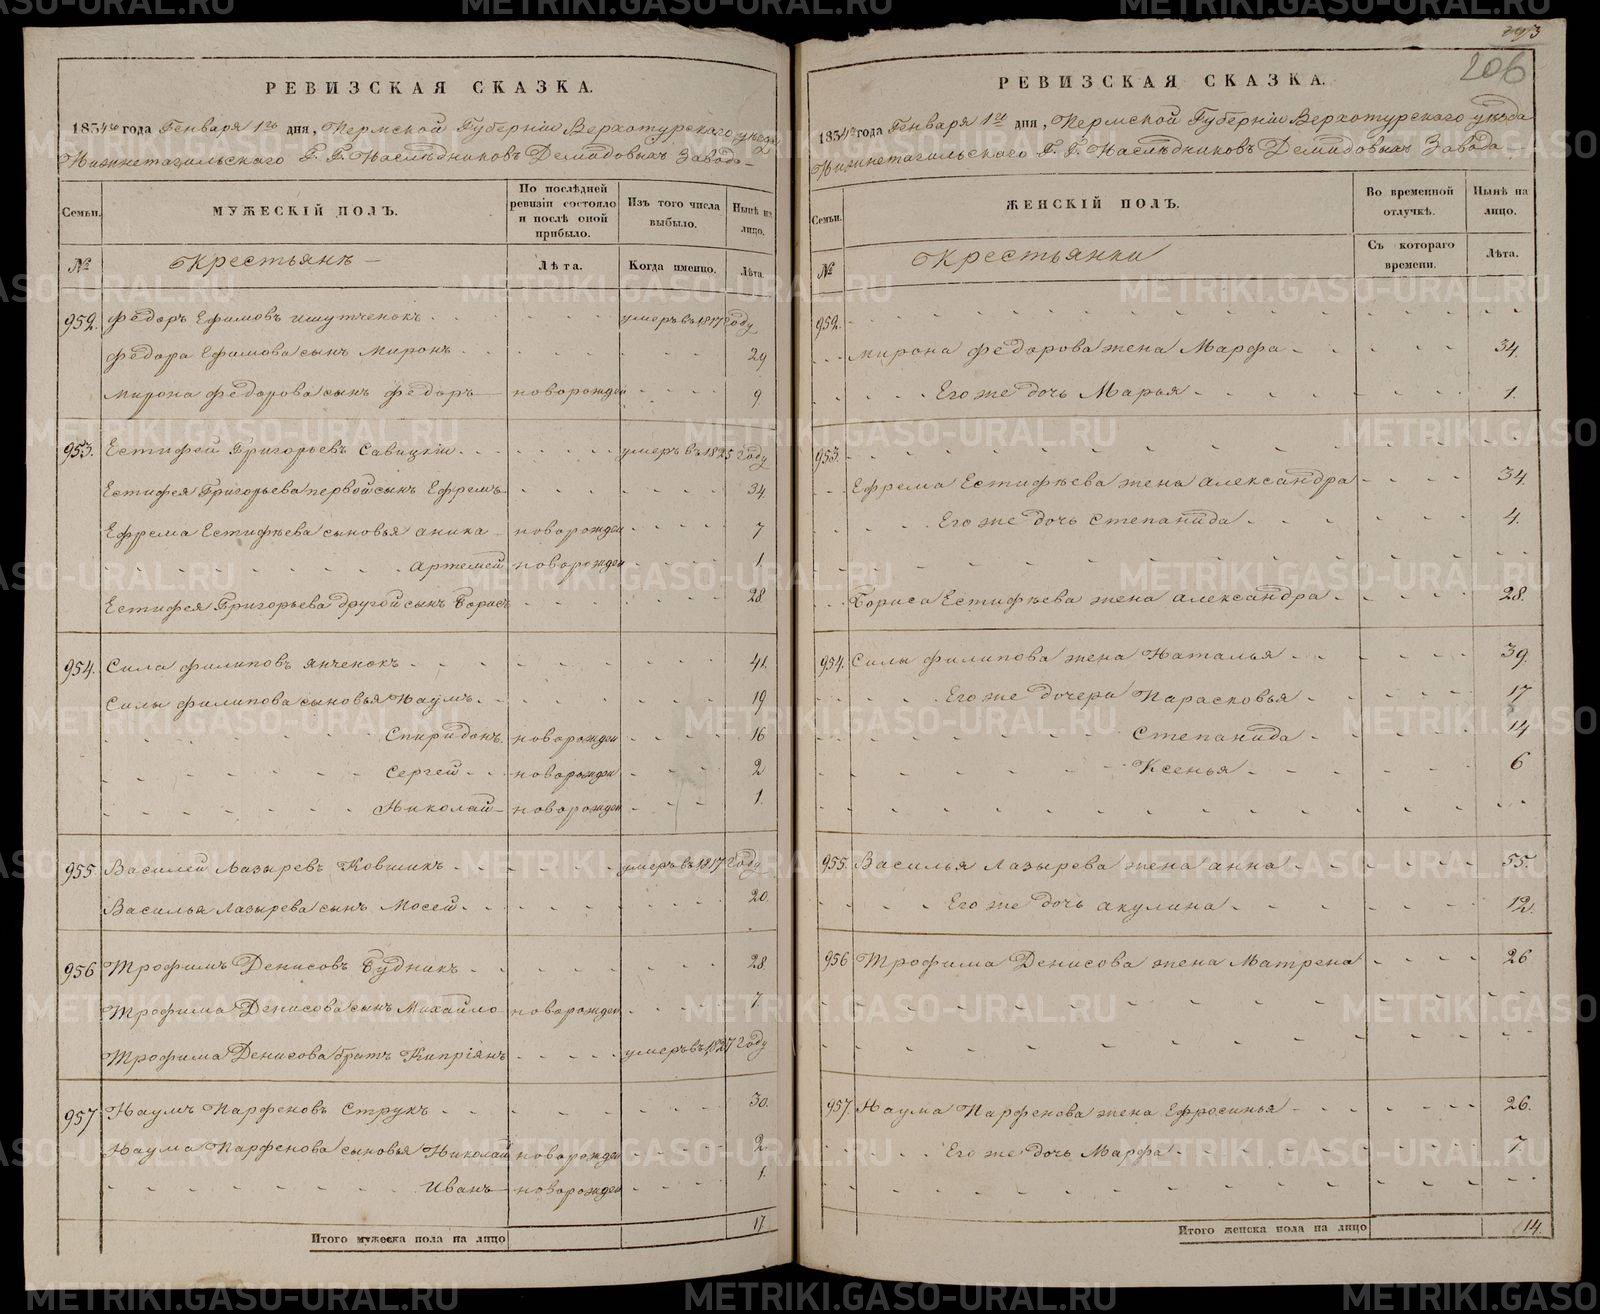 293
206
РЕВИЗСКАЯ СКАЗКА.
1834го года Генваря 1го дня, Пермской Губерніи Верхотурскаго уѣзда
Нижнетагильскаго Г. Г. Наслѣдниковъ Демидовыхъ Завода
Семьи.
МУЖЕСКІЙ ПОЛЪ.
По послѣдней ревизіи состояло и послѣ оной прибыло.
Изъ того числа выбыло.
Нынѣ на лицо.
№
Крестьянъ
Лѣта.
Когда именно.
Лѣта.
952. Федоръ Ефимовъ ишутченокъ умеръ въ 1817 году
Федора Ефимова сынъ Миронъ 29
Мирона Федорова сынъ Федоръ новорожден 9
953. Естифей Григорьевъ Савицкіи умеръ въ 1825 году
Естифея Григорьева первой сынъ Ефремъ 34
Ефрема Естифѣева сыновья аника новорожден 7
Артемей новорожден 1
Естифея Григорьева другой сынъ Борисъ 28
954. Сила Филиповъ янченокъ 41.
Силы Филипова сыновья Наумъ 19
Спиридонъ новорожден 16
Сергей новорожден 2
Николай новорожден 1.
955. Василей Лазыревъ Ковшикъ умеръ въ 1817 году
Василья Лазырева сынъ Мосей 20.
956 Трофимъ Денисовъ Будникъ 28
Трофима Денисова сынъ Михайло новорожден 7
Трофима Денисова братъ Кипріянъ умеръ въ 1827 году
957 Наумъ Парфеновъ Струкъ 30.
Наума Парфенова сыновья Николай новорожден 2
Иванъ новорожден 1.
Итого мужеска пола на лицо 17
РЕВИЗСКАЯ СКАЗКА.
1834го года Генваря 1го дня, Пермской Губерніи Верхотурскаго уѣзда
Нижнетагильскаго Г. Г. Наслѣдниковъ Демидовыхъ Завода
Семьи.
ЖЕНСКІЙ ПОЛЪ.
Во временной отлучкѣ.
Нынѣ на лицо.
№
Крестьянки
Съ котораго времени.
Лѣта.
952.
Мирона Федорова жена Марфа 34.
Его же дочь Марья 1.
953.
Ефрема Естифѣева жена Александра 34.
Его же дочь Степанида 4.
Бориса Естифѣева жена Александра 28.
954. Силы Филипова жена Наталья 39.
Его же дочери Парасковья 17
Степанида 14
Ксенья 6
955. Василья Лазырева жена анна 55.
Его же дочь акулина 12.
956 Трофима Денисова жена Матрена 26.
957. Наума Парфенова жена Ефросинья 26.
Его же дочь Марфа 7.
Итого женска пола на лицо 14.
METRIKI.GASO-URAL.RU